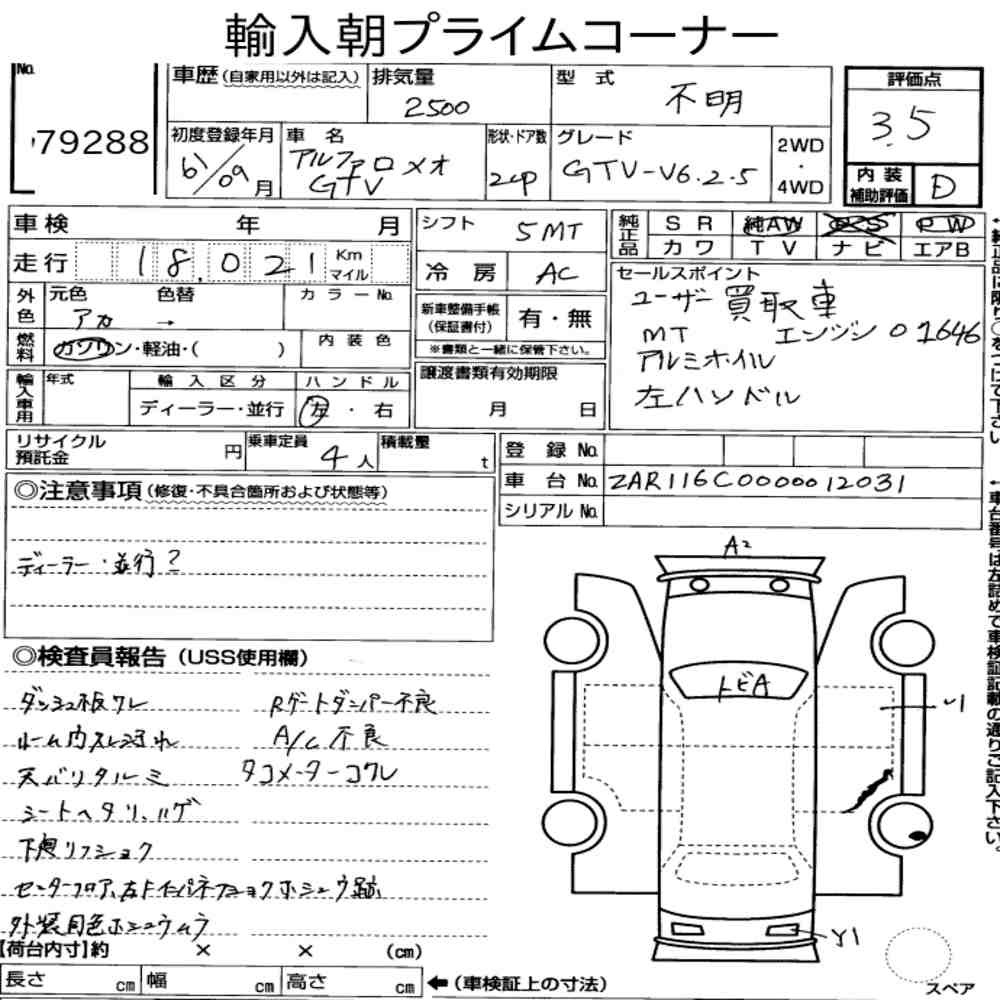 輸入朝プライムコーナー
No.
79288
車歴(自家用以外は記入)
排気量
2500
型 式
不明
評価点
3.5
初度登録年月
61/09月
車 名
アルファロメオ
GTV
形状・ドア数
2cp
グレード
GTV-V6.2.5
2WD
・
4WD
内装
補助評価
D
車検 年 月
シフト
5MT
純正品
SR 純AW PS PW
カワ TV ナビ エアB
走行 18,021 Km
マイル
冷房
AC
セールスポイント
ユーザー買取車
MT エンジン01646
アルミホイル
左ハンドル
外色
元色 色替
アカ →
カラーNo.
新車整備手帳
(保証書付)
有・無
※書類と一緒に保管下さい。
燃料
ガソリン・軽油・( )
内装色
輸入車用
年式
輸入区分
ディーラー・並行
ハンドル
左・右
譲渡書類有効期限
月 日
リサイクル
預託金 円
乗車定員
4人
積載量
t
登録No.
車台No. ZAR116C0000012031
シリアルNo.
◎注意事項(修復・不具合箇所および状態等)
ディーラー・並行?
◎検査員報告(USS使用欄)
ダッシュ板ワレ
Rゲートダンパー不良
ルーム内スレ汚れ
A/C不良
天バリタルミ
タコメーターコワレ
シートヘタリ、ハゲ
外装同色ホシュウムラ
A2
トビA
Y1
【荷台内寸】約 × × (cm)
長さ cm 幅 cm 高さ cm
←(車検証上の寸法)
スペア
←純正品に限り○をつけて下さい
←車台番号は左詰めで車検証記載の通りご記入下さい。